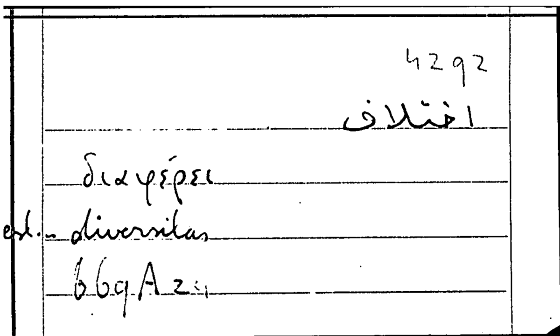 4292
اختلاف
διαφέρει
est diversitas
669A24